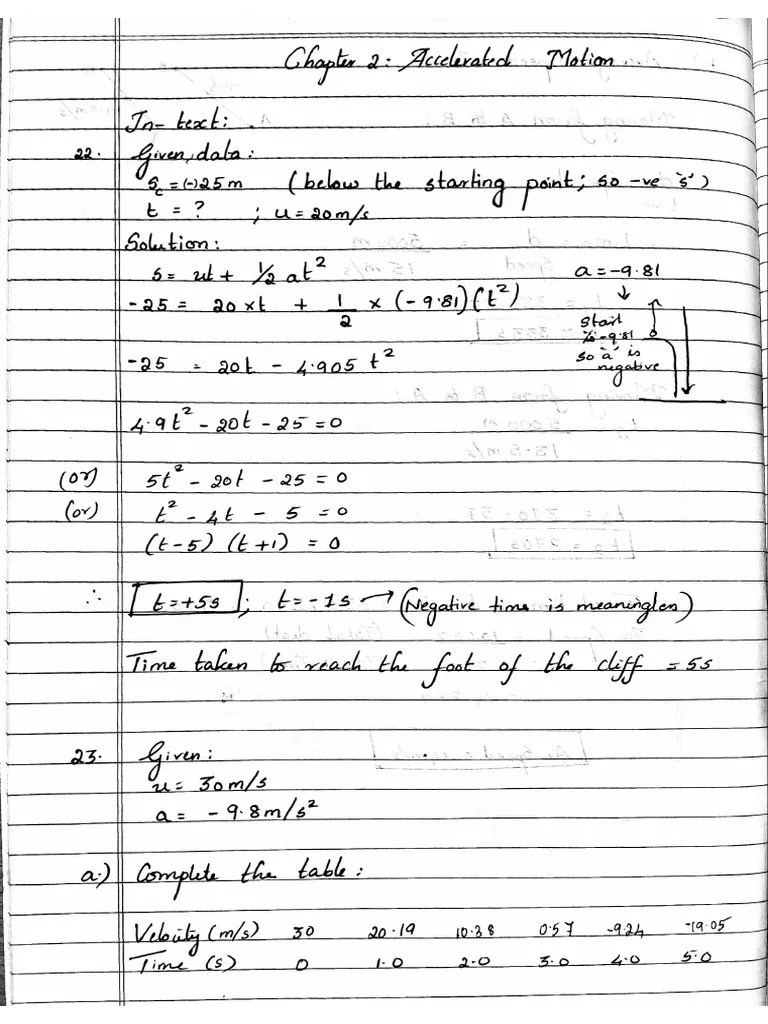 Chapter 2: Accelerated Motion
In-text:
22. Given data:
Sc = (-)25m (below the starting point; so -ve 's')
t = ? ; u = 20m/s
Solution:
s = ut + 1/2 at² a = -9.81
-25 = 20 × t + 1/2 × (-9.81)(t²)
Start
-9.81
so 'a' is
negative
-25 = 20t - 4.905 t²
4.9t² - 20t - 25 = 0
(or) 5t² - 20t - 25 = 0
(or) t² - 4t - 5 = 0
(t-5) (t+1) = 0
∴ t = +5s ; t = -1s → (Negative time is meaningless)
Time taken to reach the foot of the cliff = 5s
23. Given:
u = 30m/s
a = -9.8m/s²
a.) Complete the table:
Velocity (m/s) 30 20.19 10.38 0.57 -9.24 -19.05
Time (s) 0 1.0 2.0 3.0 4.0 5.0